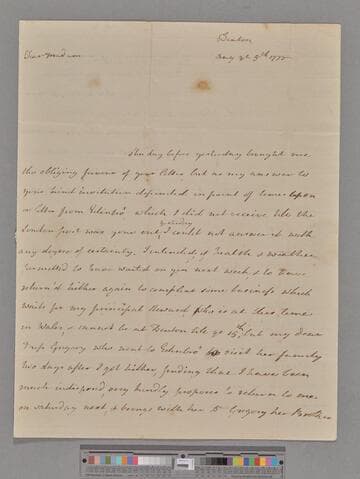 Denton
Augt ye 5th 1777
Dear Madam
The day before yesterday brought me
the obliging favour of your letter but as my answer to
your kind invitation depended in point of time upon
a letter from Edenbro' which I did not receive till the
yesterday
London post was gone out, I could not answer it with
any degree of certainty. I intended, if health & weather
permitted to have waited on you next week, & to have
return'd hither again to compleat some business which
waits for my principal Steward who is at this time
in Wales, & cannot be at Denton till ye 15th, but my dear
Miss Gregory who went to Edenbro' to visit her family
two days after I got hither, finding that I have been
much indisposed, very kindly proposes to return to me
on saturday next & brings with her Dr Gregory her Brother